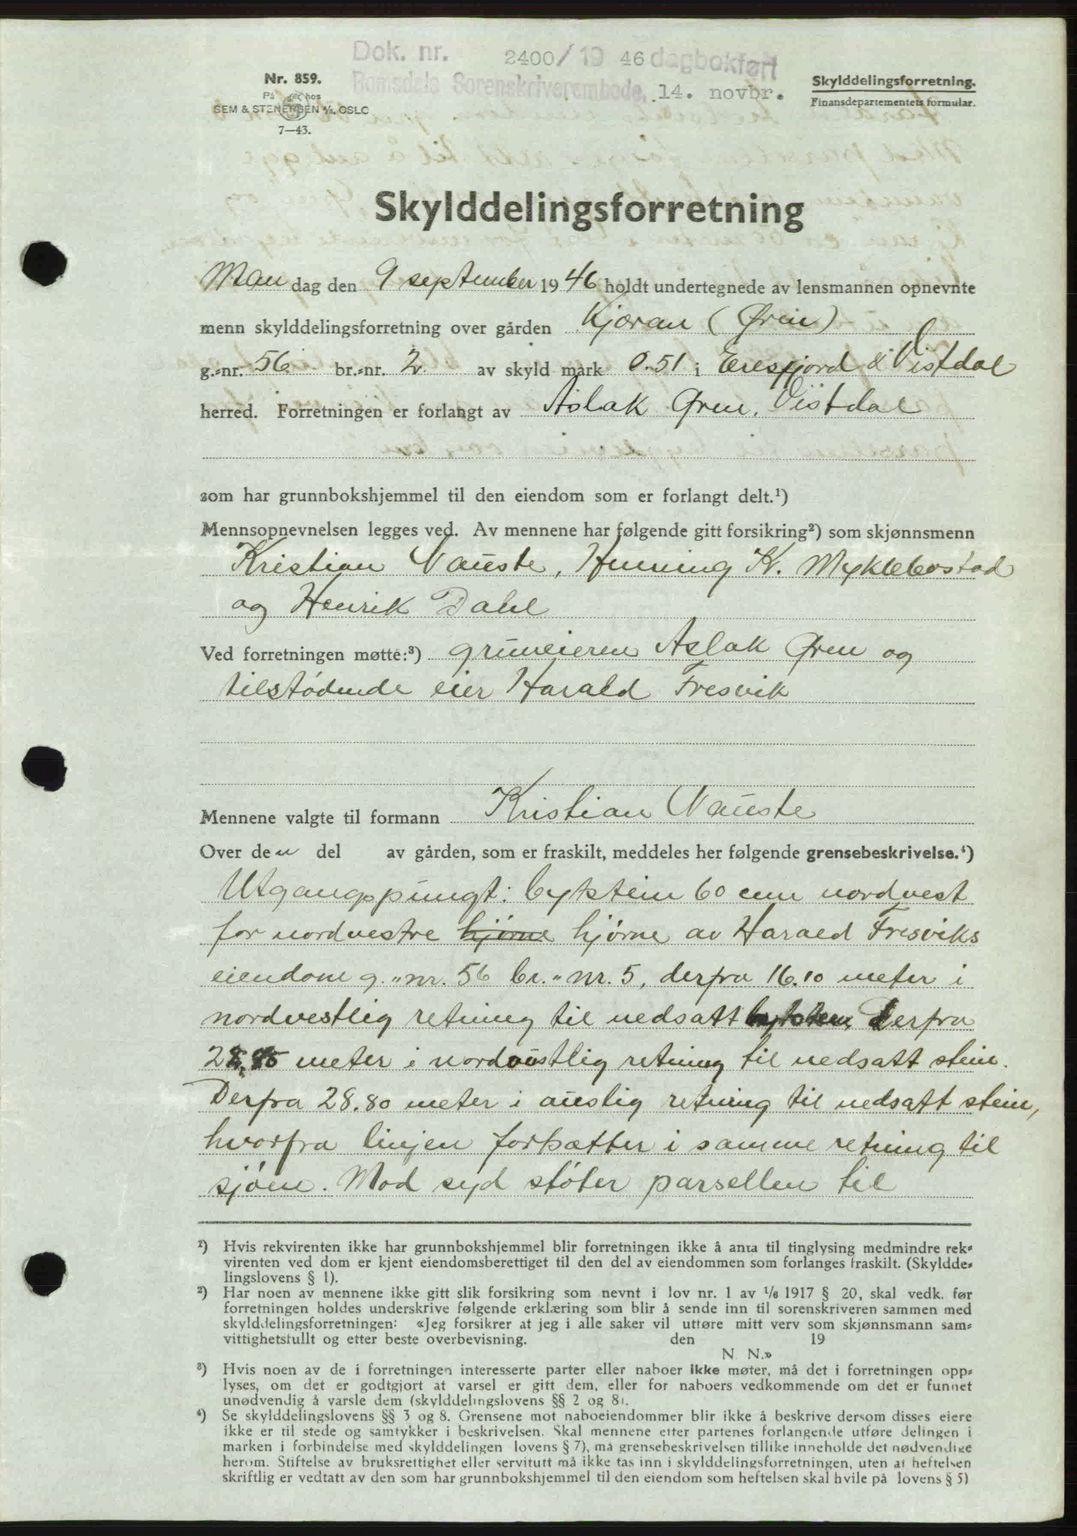 Dok. nr. 2400/1946 dagbokført
Romsdals Sorenskriverembede, 14. novbr.
Nr. 859.
På hos
SEM & STENERSEN A/S, OSLO
7—43.
Skylddelingsforretning.
Finansdepartementets formular.
Skylddelingsforretning
Man dag den 9 september 1946 holdt undertegnede av lensmannen opnevnte
menn skylddelingsforretning over gården Kjøran (Øren)
g.-nr. 56 br.-nr. 2 av skyld mark 0.51 i Eresfjord & Vistdal
herred. Forretningen er forlangt av Aslak Øren, Vistdal
som har grunnbokshjemmel til den eiendom som er forlangt delt.¹)
Mennsopnevnelsen legges ved. Av mennene har følgende gitt forsikring²) som skjønnsmenn
Kristian Nauste, Henning K. Myklebostad
og Henrik Dahl
Ved forretningen møtte:³) gruneieren Aslak Øren og
tilstødende eier Harald Fresvik
Mennene valgte til formann Kristian Nauste
Over den del av gården, som er fraskilt, meddeles her følgende grensebeskrivelse.⁴)
Utgangspungt: bytstein 60 cm nordvest
for nordvestre hjørne hjørne av Harald Fresviks
eiendom g.-nr. 56 br.-nr. 5, derfra 16.10 meter i
nordvestlig retning til nedsatt Derfra
meter i nordoustlig retning til nedsatt stein.
Derfra 28.80 meter i auslig retning til nedsatt stein,
hvorfra linjen fortsætter i samme retning til
sjøen. Mod syd støter parsellen til
¹) Hvis rekvirenten ikke har grunnbokshjemmel blir forretningen ikke å anta til tinglysing medmindre rek-
virenten ved dom er kjent eiendomsberettiget til den del av eiendommen som forlanges fraskilt. (Skyldde-
lingslovens § 1).
²) Har noen av mennene ikke gitt slik forsikring som nevnt i lov nr. 1 av 1/6 1917 § 20, skal vedk. før
forretningen holdes underskrive følgende erklæring som blir å sende inn til sorenskriveren sammen med
skylddelingsforretningen: «Jeg forsikrer at jeg i alle saker vil utføre mitt verv som skjønnsmann sam-
vittighetsfullt og etter beste overbevisning. den 19
N. N.»
³) Hvis noen av de i forretningen interesserte parter eller naboer ikke møter, må det i forretningen opp-
lyses, om det er godtgjort at varsel er gitt dem, eller for naboers vedkommende om det er funnet
unødvendig å varsle dem (skylddelingslovens §§ 2 og 8).
⁴) Se skylddelingslovens §§ 3 og 8. Grensene mot naboeiendommer blir ikke å beskrive dersom disses eiere
ikke er til stede og samtykker i beskrivelsen. Skal mennene etter partenes forlangende utføre delingen i
marken i forbindelse med skylddelingen (lovens § 7), må grensebeskrivelsen tillike inneholde det nødvendige
herom. Stiftelse av bruksrettighet eller servitutt må ikke tas inn i skylddelingsforretningen, uten at heftelsen
skriftlig er vedtatt av den som har grunnbokshjemmel til den eiendom som heftelsen skal hvile på (lovens § 5)